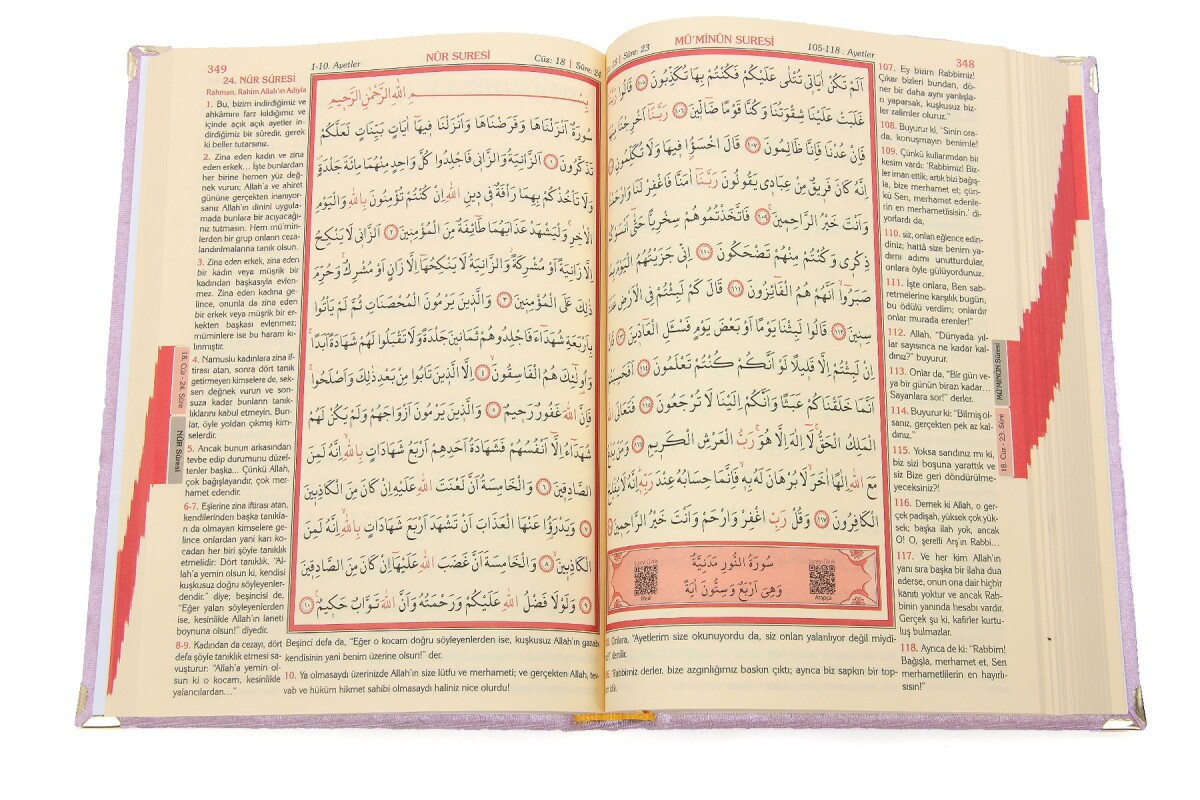 Süre: 23
MÜ'MİNÛN SURESİ
105-118. Ayetler
348
اَلَمْ تَكُنْ اٰيَاتٖي تُتْلٰى عَلَيْكُمْ فَكُنْتُمْ بِهَا تُكَذِّبُونَ ١٠٥ قَالُوا
غَلَبَتْ عَلَيْنَا شِقْوَتُنَا وَكُنَّا قَوْمًا ضَٓالّٖينَ ١٠٦ رَبَّنَٓا اَخْرِجْنَا
فَاِنْ عُدْنَا فَاِنَّا ظَالِمُونَ ١٠٧ قَالَ اخْسَؤُ۫ا فٖيهَا وَلَا تُكَلِّمُونِ
اِنَّهُ كَانَ فَرٖيقٌ مِنْ عِبَادٖي يَقُولُونَ رَبَّنَٓا اٰمَنَّا فَاغْفِرْ لَنَا
وَاَنْتَ خَيْرُ الرَّاحِمٖينَ ١٠٩ فَاتَّخَذْتُمُوهُمْ سِخْرِيًّا حَتّٰٓى
ذِكْرٖي وَكُنْتُمْ مِنْهُمْ تَضْحَكُونَ ١١٠ اِنّٖي جَزَيْتُهُمُ الْيَوْمَ
صَبَرُٓوا اَنَّهُمْ هُمُ الْفَٓائِزُونَ ١١١ قَالَ كَمْ لَبِثْتُمْ فِي الْاَرْضِ
سِنٖينَ ١١٢ قَالُوا لَبِثْنَا يَوْمًا اَوْ بَعْضَ يَوْمٍ فَسْـَٔلِ الْعَٓادّٖينَ
اِنْ لَبِثْتُمْ اِلَّا قَلٖيلًا لَوْ اَنَّكُمْ كُنْتُمْ تَعْلَمُونَ ١١٤
اَنَّمَا خَلَقْنَاكُمْ عَبَثًا وَاَنَّكُمْ اِلَيْنَا لَا تُرْجَعُونَ ١١٥
الْمَلِكُ الْحَقُّ لَٓا اِلٰهَ اِلَّا هُوَ رَبُّ الْعَرْشِ الْكَرٖيمِ ١١٦
مَعَ اللّٰهِ اِلٰهًا اٰخَرَ لَا بُرْهَانَ لَهُ بِهٖ فَاِنَّمَا حِسَابُهُ عِنْدَ رَبِّهٖ اِنَّهُ لَا
الْكَافِرُونَ ١١٧ وَقُلْ رَبِّ اغْفِرْ وَارْحَمْ وَاَنْتَ خَيْرُ الرَّاحِمٖينَ
سُورَةُ النُّورِ مَدَنِيَّةٌ
وَهِيَ اَرْبَعٌ وَسِتُّونَ اٰيَةً
Meal
Arapça
107. Ey bizim Rabbimiz!
Çıkar bizleri bundan, dö-
ner bir daha aynı yanlışla-
rı yaparsak, kuşkusuz biz-
ler zalimler oluruz."
108. Buyurur ki, "Sinin ora-
da, konuşmayın benimle!
109. Çünkü kullarımdan bir
kesim vardı; 'Rabbimiz! Biz-
ler iman ettik; artık bizi bağış-
la, bize merhamet et; çün-
kü Sen, merhamet edenle-
rin en merhametlisisin.' di-
yorlardı da,
110. siz, onları eğlence edin-
diniz; hattâ size benim ya-
dımı adımı unutturdular,
onlara öyle gülüyordunuz.
111. İşte onlara, Ben sab-
retmelerine karşılık bugün,
bu ödülü verdim; onlardır
onlar murada erenler!"
112. Allah, "Dünyada yıl-
lar sayısınca ne kadar kal-
dınız?" buyurur.
113. Onlar da, "Bir gün ve-
ya bir günün birazı kadar...
Sayanlara sor!" derler.
114. Buyurur ki: "Bilmiş ol-
sanız, gerçekten pek az kal-
dınız."
115. Yoksa sandınız mı ki,
biz sizi boşuna yarattık ve
siz Bize geri döndürülme-
yeceksiniz?!
116. Demek ki Allah, o ger-
çek padişah, yüksek çok yük-
sek; başka ilah yok, ancak
O! O, şerefli Arş'ın Rabbi...
117. Ve her kim Allah'ın
yanı sıra başka bir ilaha dua
ederse, onun ona dair hiçbir
kanıtı yoktur ve ancak Rab-
binin yanında hesabı vardır.
Gerçek şu ki, kafirler kurtu-
luş bulmazlar.
118. Ayrıca de ki: "Rabbim!
Bağışla, merhamet et, Sen
merhametlilerin en hayırlı-
sısın!"
MÜ'MİNÛN Sûresi
18. Cüz - 23. Sûre
Onlara, "Ayetlerim size okunuyordu da, siz onları yalanlıyor değil miydi-
denilir.
"Rabbimiz derler, bize azgınlığımız baskın çıktı; ayrıca biz sapkın bir top-
idik.
349
1-10. Ayetler
NÛR SURESİ
Cüz: 18 | Sûre: 24
بِسْمِ اللّٰهِ الرَّحْمٰنِ الرَّحٖيمِ
سُورَةٌ اَنْزَلْنَاهَا وَفَرَضْنَاهَا وَاَنْزَلْنَا فٖيهَٓا اٰيَاتٍ بَيِّنَاتٍ لَعَلَّكُمْ
تَذَكَّرُونَ ١ اَلزَّانِيَةُ وَالزَّانٖي فَاجْلِدُوا كُلَّ وَاحِدٍ مِنْهُمَا مِائَةَ جَلْدَةٍ
وَلَا تَأْخُذْكُمْ بِهِمَا رَأْفَةٌ فٖي دٖينِ اللّٰهِ اِنْ كُنْتُمْ تُؤْمِنُونَ بِاللّٰهِ وَالْيَوْمِ
الْاٰخِرِ وَلْيَشْهَدْ عَذَابَهُمَا طَٓائِفَةٌ مِنَ الْمُؤْمِنٖينَ ٢ اَلزَّانٖي لَا يَنْكِحُ
اِلَّا زَانِيَةً اَوْ مُشْرِكَةً وَالزَّانِيَةُ لَا يَنْكِحُهَٓا اِلَّا زَانٍ اَوْ مُشْرِكٌ وَحُرِّمَ
ذٰلِكَ عَلَى الْمُؤْمِنٖينَ ٣ وَالَّذٖينَ يَرْمُونَ الْمُحْصَنَاتِ ثُمَّ لَمْ يَأْتُوا
بِاَرْبَعَةِ شُهَدَٓاءَ فَاجْلِدُوهُمْ ثَمَانٖينَ جَلْدَةً وَلَا تَقْبَلُوا لَهُمْ شَهَادَةً اَبَدًا
وَاُو۬لٰٓئِكَ هُمُ الْفَاسِقُونَ ٤ اِلَّا الَّذٖينَ تَابُوا مِنْ بَعْدِ ذٰلِكَ وَاَصْلَحُوا
فَاِنَّ اللّٰهَ غَفُورٌ رَحٖيمٌ ٥ وَالَّذٖينَ يَرْمُونَ اَزْوَاجَهُمْ وَلَمْ يَكُنْ لَهُمْ
شُهَدَٓاءُ اِلَّٓا اَنْفُسُهُمْ فَشَهَادَةُ اَحَدِهِمْ اَرْبَعُ شَهَادَاتٍ بِاللّٰهِ اِنَّهُ لَمِنَ
الصَّادِقٖينَ ٦ وَالْخَامِسَةُ اَنَّ لَعْنَتَ اللّٰهِ عَلَيْهِ اِنْ كَانَ مِنَ الْكَاذِبٖينَ
٧ وَيَدْرَؤُ۬ا عَنْهَا الْعَذَابَ اَنْ تَشْهَدَ اَرْبَعَ شَهَادَاتٍ بِاللّٰهِ اِنَّهُ لَمِنَ
الْكَاذِبٖينَ ٨ وَالْخَامِسَةَ اَنَّ غَضَبَ اللّٰهِ عَلَيْهَٓا اِنْ كَانَ مِنَ الصَّادِقٖينَ
٩ وَلَوْلَا فَضْلُ اللّٰهِ عَلَيْكُمْ وَرَحْمَتُهُ وَاَنَّ اللّٰهَ تَوَّابٌ حَكٖيمٌ ١٠
24. NÛR SÛRESİ
Rahman, Rahim Allah'ın Adıyla
1. Bu, bizim indirdiğimiz ve
ahkâmını farz kıldığımız ve
içinde açık açık ayetler in-
dirdiğimiz bir sûredir, gerek
ki beller tutarsınız.
2. Zina eden kadın ve zina
eden erkek... İşte bunlardan
her birine hemen yüz değ-
nek vurun; Allah'a ve ahiret
gününe gerçekten inanıyor-
sanız Allah'ın dinini uygula-
mada bunlara bir acıyacağı-
nız tutmasın. Hem mü'min-
lerden bir grup onların ceza-
landırılmalarına tanık olsun.
3. Zina eden erkek, zina eden
bir kadın veya müşrik bir
kadından başkasıyla evlen-
mez. Zina eden kadına ge-
lince, onunla da zina eden
bir erkek veya müşrik bir er-
kekten başkası evlenmez;
müminlere ise bu haram kı-
lınmıştır.
4. Namuslu kadınlara zina if-
tirası atan, sonra dört tanık
getirmeyen kimselere de, sek-
sen değnek vurun ve son-
suza kadar bunların tanık-
lıklarını kabul etmeyin. Bun-
lar, öyle yoldan çıkmış kim-
selerdir.
5. Ancak bunun arkasından
tevbe edip durumunu düzel-
tenler başka... Çünkü Allah,
çok bağışlayandır, çok mer-
hamet edendir.
6-7. Eşlerine zina iftirası atan,
kendilerinden başka tanıkla-
rı da olmayan kimselere ge-
lince onlardan yani karı ko-
cadan her biri şöyle tanıklık
etmelidir: Dört tanıklık, "Al-
lah'a yemin olsun ki, kendisi
kuşkusuz doğru söyleyenler-
dendir." diye; beşincisi de,
"Eğer yalan söyleyenlerden
ise, kesinlikle Allah'ın laneti
boynuna olsun!" diyedir.
8-9. Kadından da cezayı, dört
defa şöyle tanıklık etmesi sa-
vuşturur: "Allah'a yemin ol-
sun ki o kocam, kesinlikle
yalancılardan..."
18. Cüz - 24. Sûre
NÛR Sûresi
Beşinci defa da, "Eğer o kocam doğru söyleyenlerden ise, kuşkusuz Allah'ın gazabı
kendisinin yani benim üzerine olsun!" der.
10. Ya olmasaydı üzerinizde Allah'ın size lütfu ve merhameti; ve gerçekten Allah, tev-
vab ve hüküm hikmet sahibi olmasaydı haliniz nice olurdu!